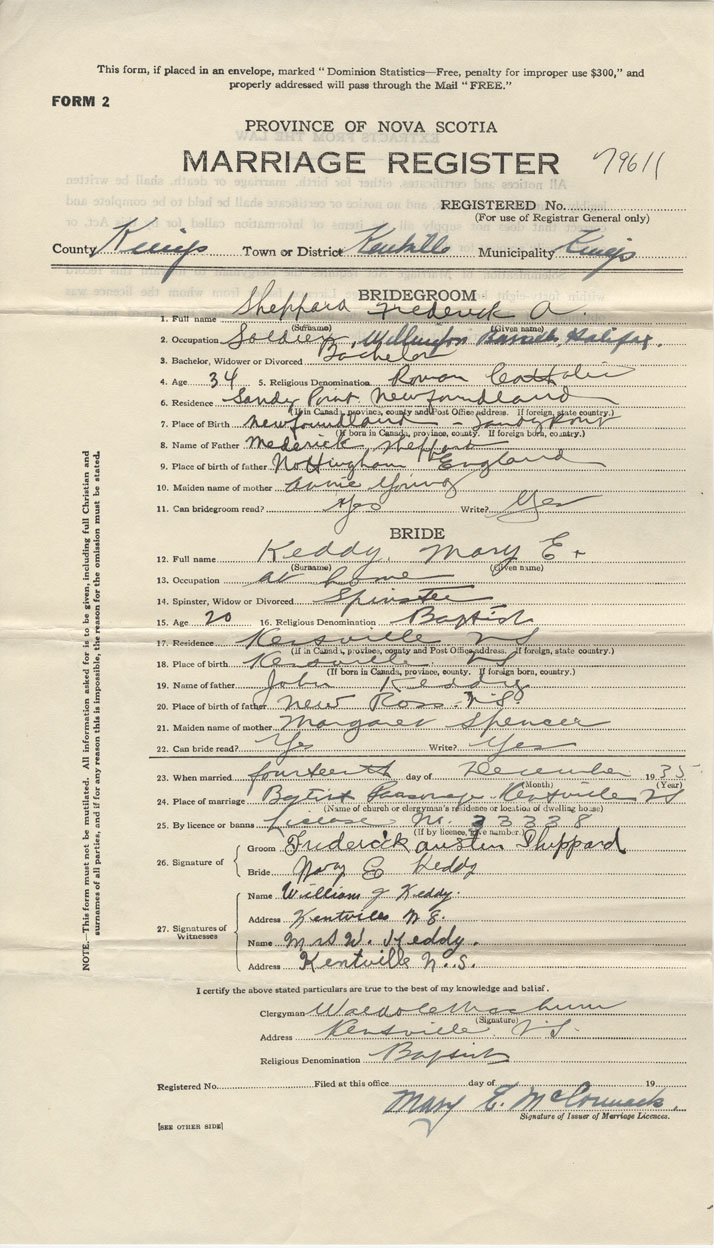 This form, if placed in an envelope, marked "Dominion Statistics—Free, penalty for improper use $300," and
properly addressed will pass through the Mail "FREE."
FORM 2
PROVINCE OF NOVA SCOTIA
MARRIAGE REGISTER 79611
REGISTERED No.
(For use of Registrar General only)
County Kings Town or District Kentville Municipality Kings
BRIDEGROOM
1. Full name Sheppard Frederick A.
(Surname) (Given name)
2. Occupation Soldier, Wellington Barracks, Halifax.
3. Bachelor, Widower or Divorced Bachelor
4. Age 34 5. Religious Denomination Roman Catholic
6. Residence Sandy Point Newfoundland
(If in Canada, province, county and Post Office address. If foreign, state country.)
7. Place of Birth Newfoundland - Sandy Point
(If born in Canada, province, county. If foreign born, country.)
8. Name of Father Mederick Sheppard
9. Place of birth of father Nottingham England
10. Maiden name of mother Annie Young
11. Can bridegroom read? Yes Write? Yes
BRIDE
12. Full name Keddy, Mary E.
(Surname) (Given name)
13. Occupation at home
14. Spinster, Widow or Divorced Spinster
15. Age 20 16. Religious Denomination Baptist
17. Residence Kentville N S
(If in Canada, province, county and Post Office address. If foreign, state country.)
18. Place of birth Kentville N S
(If born in Canada, province, county. If foreign born, country.)
19. Name of father John Keddy
20. Place of birth of father New Ross N.S.
21. Maiden name of mother Margaret Spencer
22. Can bride read? Yes Write? Yes
23. When married fourteenth day of December 1935
(Month) (Year)
24. Place of marriage Baptist Parsonage Kentville N S
(Name of church or clergyman's residence or location of dwelling house)
25. By licence or banns License No. 33338
(If by licence, give number.)
26. Signature of
Groom Frederick Austin Sheppard
Bride Mary E Keddy
27. Signatures of Witnesses
Name William J Keddy.
Address Kentville N.S.
Name Mrs W. Keddy.
Address Kentville N.S.
I certify the above stated particulars are true to the best of my knowledge and belief.
Clergyman
(Signature)
Address Kentville N.S.
Religious Denomination Baptist
Registered No. Filed at this office day of 19
Mary E. McCormack.
Signature of Issuer of Marriage Licences.
[SEE OTHER SIDE]
NOTE.—This form must not be mutilated. All information asked for is to be given, including full Christian and
surnames of all parties, and if for any reason this is impossible, the reason for the omission must be stated.